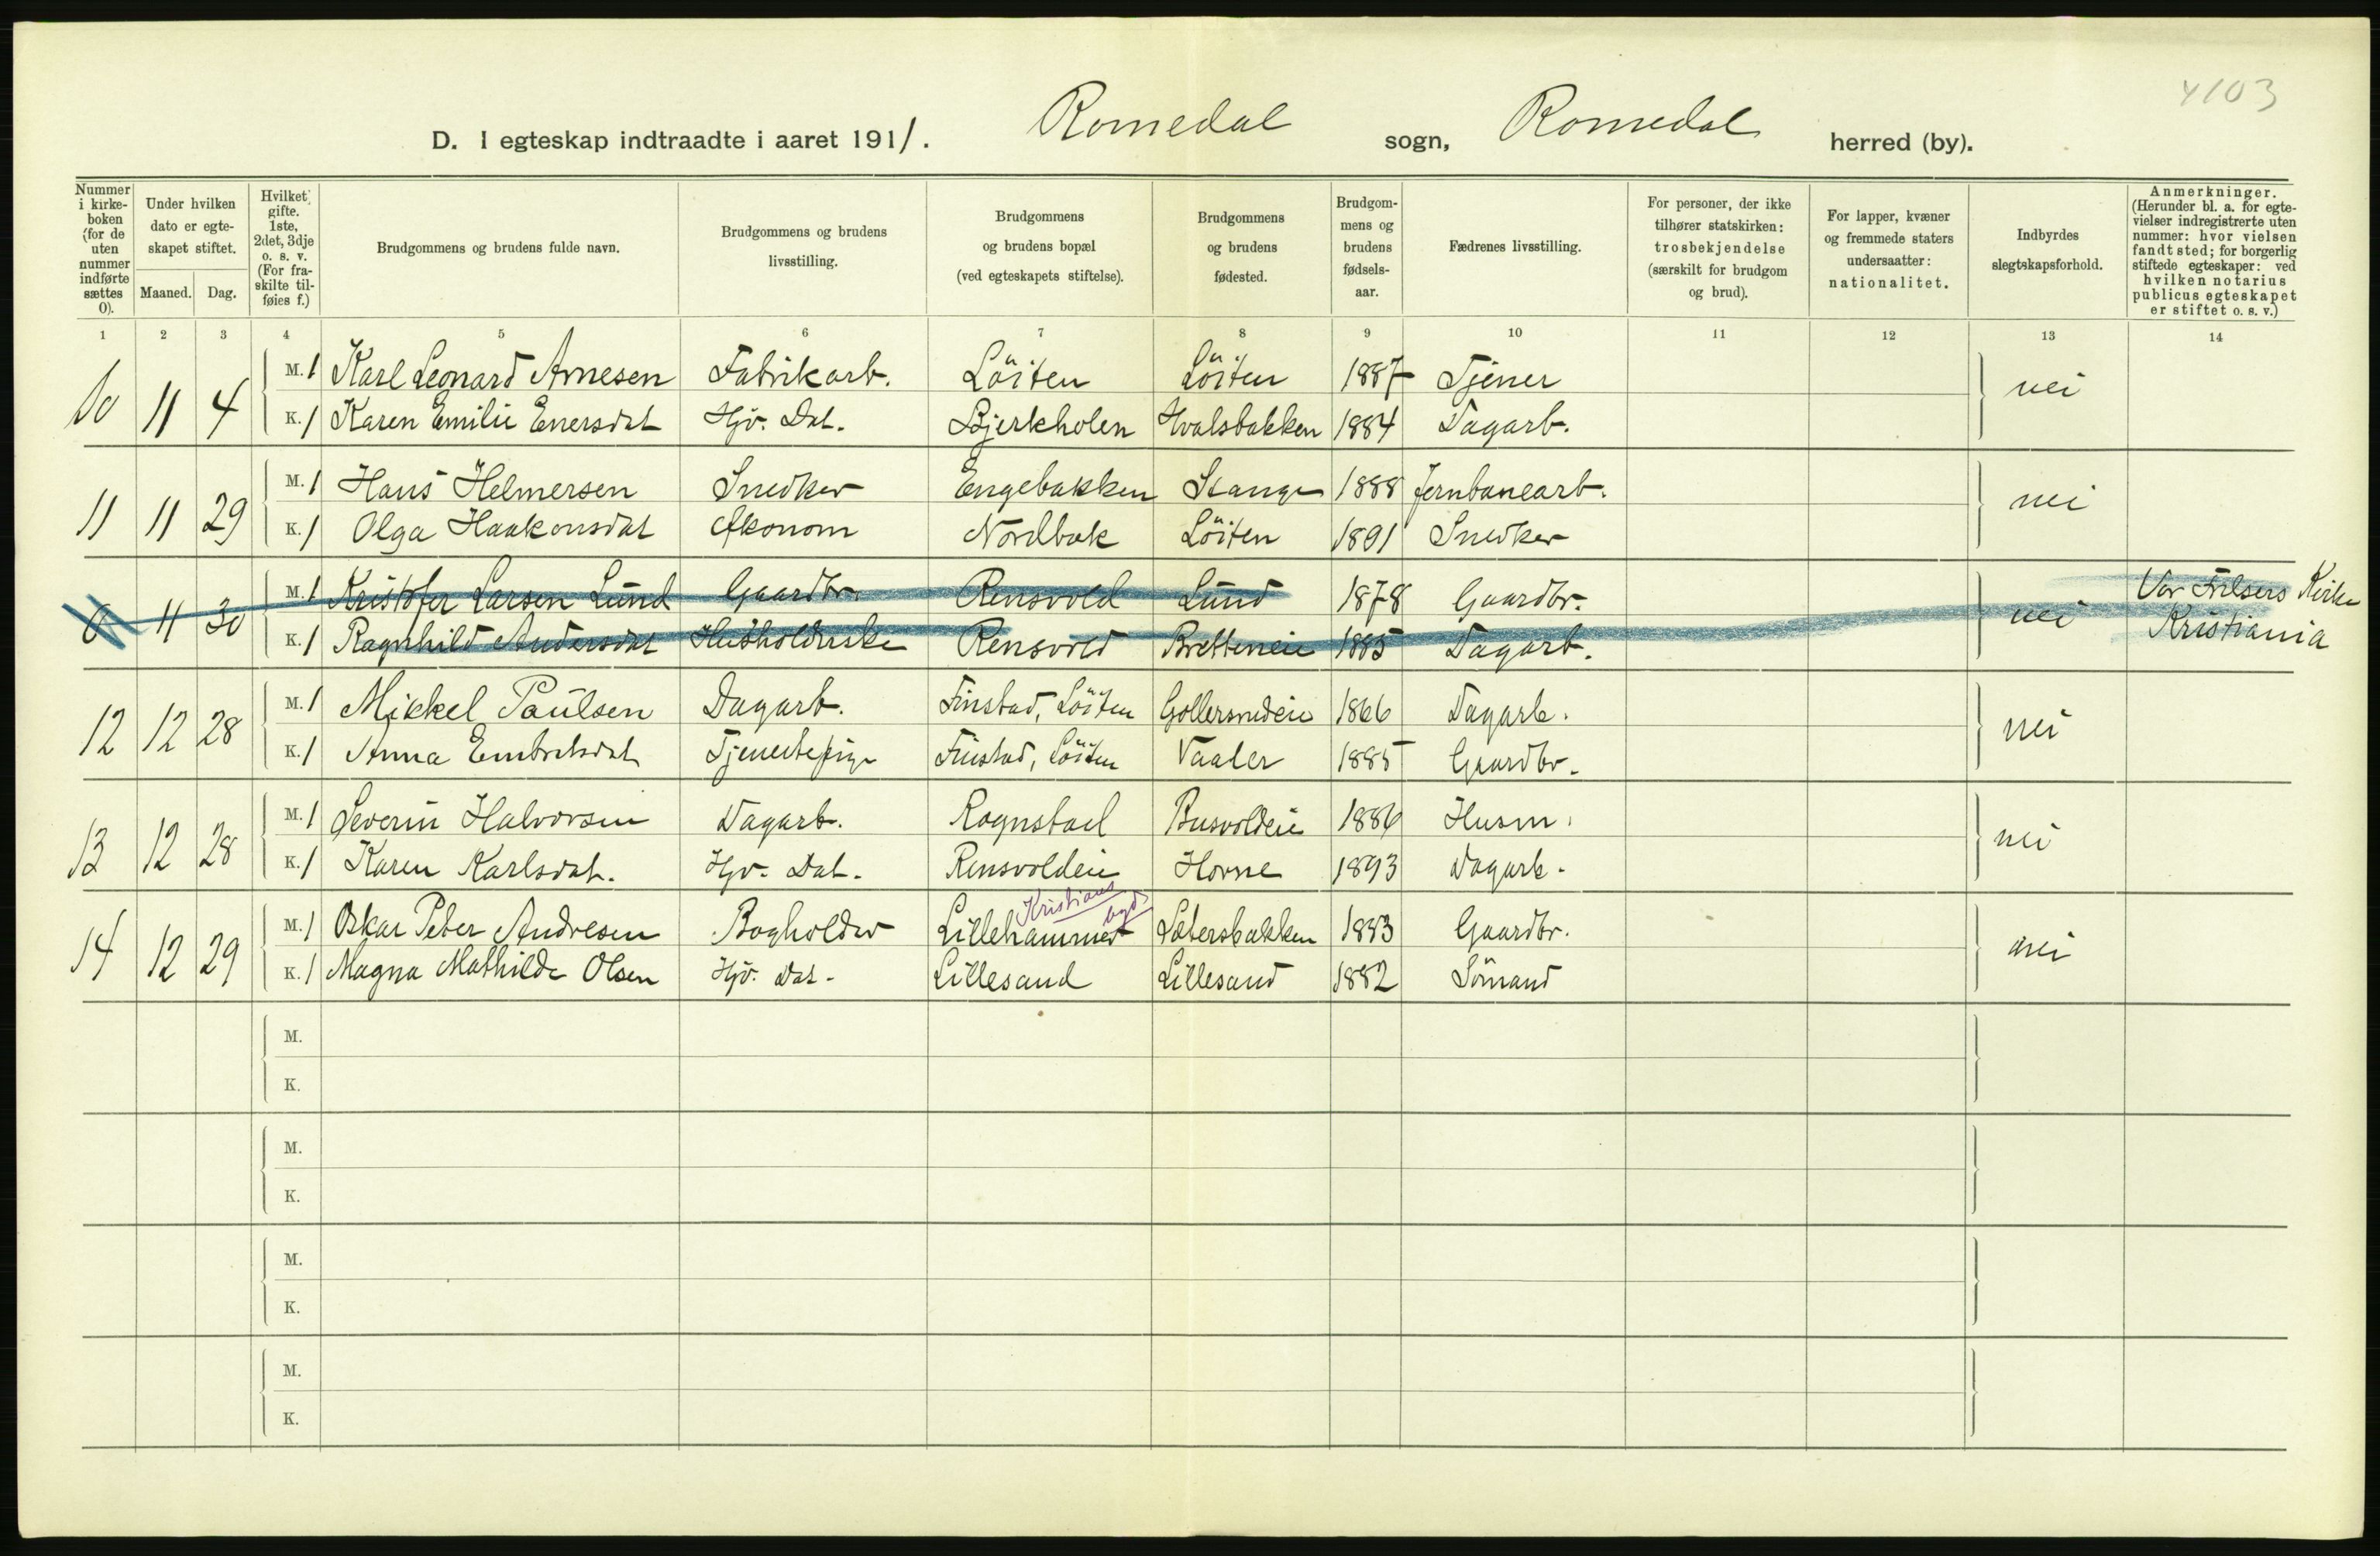 4103
D. I egteskap indtraadte i aaret 1911. Romedal sogn, Romedal herred (by).
Nummer i kirkeboken (for de uten nummer indførte sættes 0). Under hvilken dato er egteskapet stiftet. Maaned. Dag. Hvilket gifte. 1ste, 2det, 3dje o. s. v. (For fraskilte tilføies f.) Brudgommens og brudens fulde navn. Brudgommens og brudens livsstilling. Brudgommens og brudens bopæl (ved egteskapets stiftelse). Brudgommens og brudens fødested. Brudgommens og brudens fødselsaar. Fædrenes livsstilling. For personer, der ikke tilhører statskirken: trosbekjendelse (særskilt for brudgom og brud). For lapper, kvæner og fremmede staters undersaatter: nationalitet. Indbyrdes slegtskapsforhold. Anmerkninger. (Herunder bl. a. for egtevielser indregistrerte uten nummer: hvor vielsen fandt sted; for borgerlig stiftede egteskaper: ved hvilken notarius publicus egteskapet er stiftet o. s. v.)
1 2 3 4 5 6 7 8 9 10 11 12 13 14
10 11 4 M. 1 Karl Leonard Arnesen Fabrikarb. Löiten Löiten 1887 Tjener nei
K. 1 Karen Emilie Enersdat Hjv. Dat. Bjerkholen Hvalsbakken 1884 Dagarb.
11 11 29 M. 1 Hans Helmersen Snedker Engebakken Stange 1888 Jernbanearb. nei
K. 1 Olga Haakonsdat Økonom Nordbæk Löiten 1891 Snedker
0 11 30 M. 1 Kristofer Larsen Lund Gaardbr. Rensvold Lund 1878 Gaardbr. nei Vor Frelsers Kirke
K. 1 Ragnhild Andersdat Husholderske Rensvold 1885 Dagarb. Kristiania
12 12 28 M. 1 Mikkel Paulsen Dagarb. Finstad, Löiten 1866 Dagarb. nei
K. 1 Anna Embretsdat Tjenestepige Finstad, Löiten Vaaler 1885 Gaardbr.
13 12 28 M. 1 Severin Halvorsen Dagarb. Rognstad 1886 Husm. nei
K. 1 Karen Karlsdat. Hjv. Dat. Rensvoldeie Horne 1893 Dagarb.
Kristians
bygd
14 12 29 M. 1 Oskar Peter Andresen Bogholder Lillehammer Sætersbakken 1883 Gaardbr. nei
K. 1 Magna Mathilde Olsen Hjv. Dat. Lillesand Lillesand 1882 Sömand
M.
K.
M.
K.
M.
K.
M.
K.